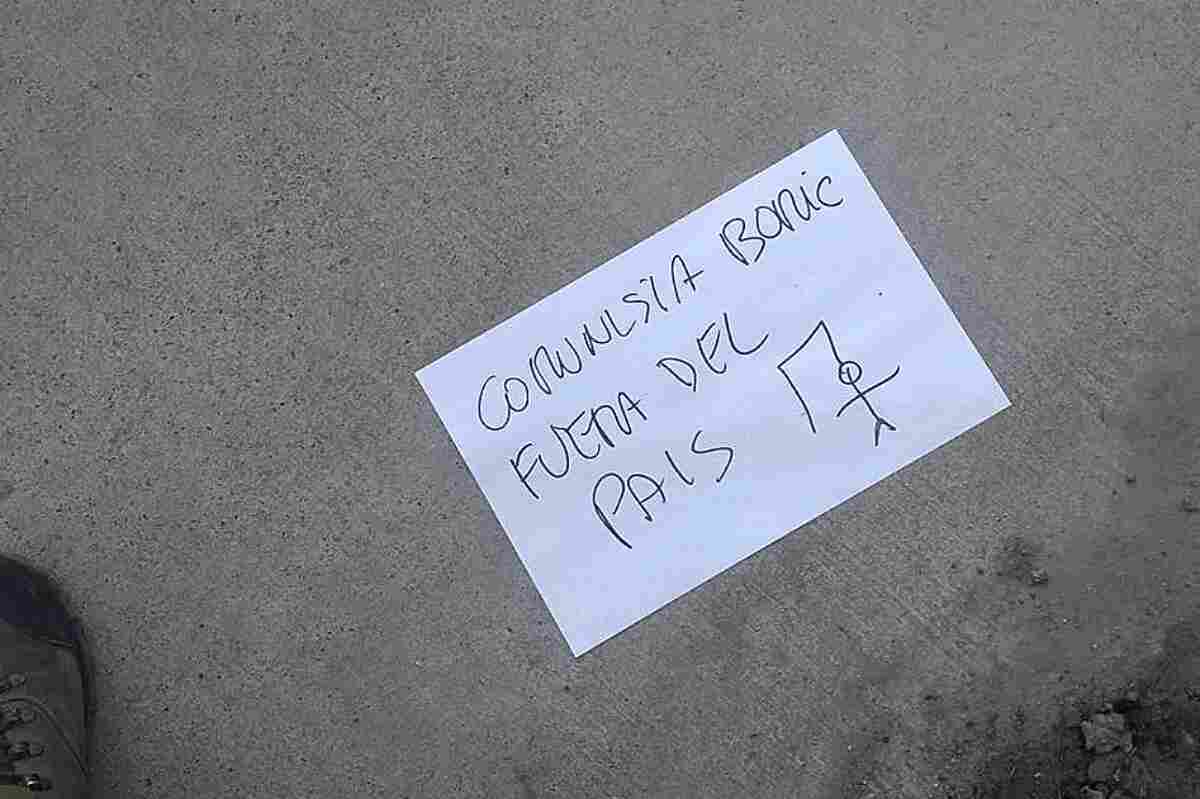 COMUNLSIA BORIC
FUERA DEL
PAIS